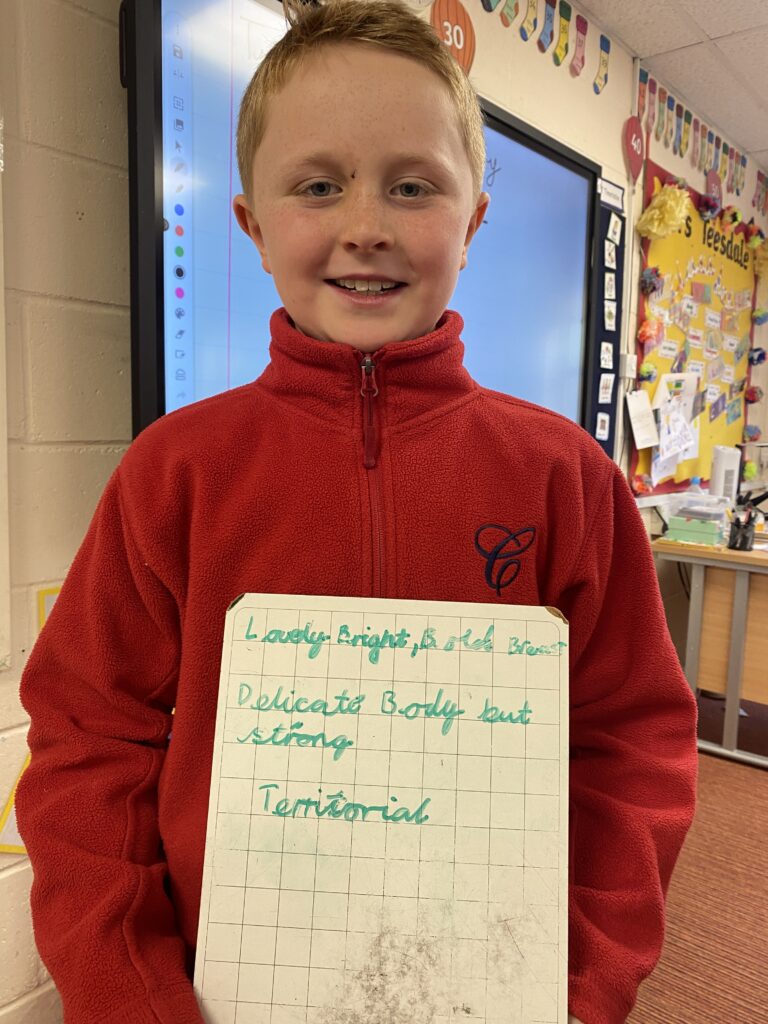 Lovely Bright, Bold Breast
Delicate Body but
strong
Territorial
30
40
s Teesdale
C